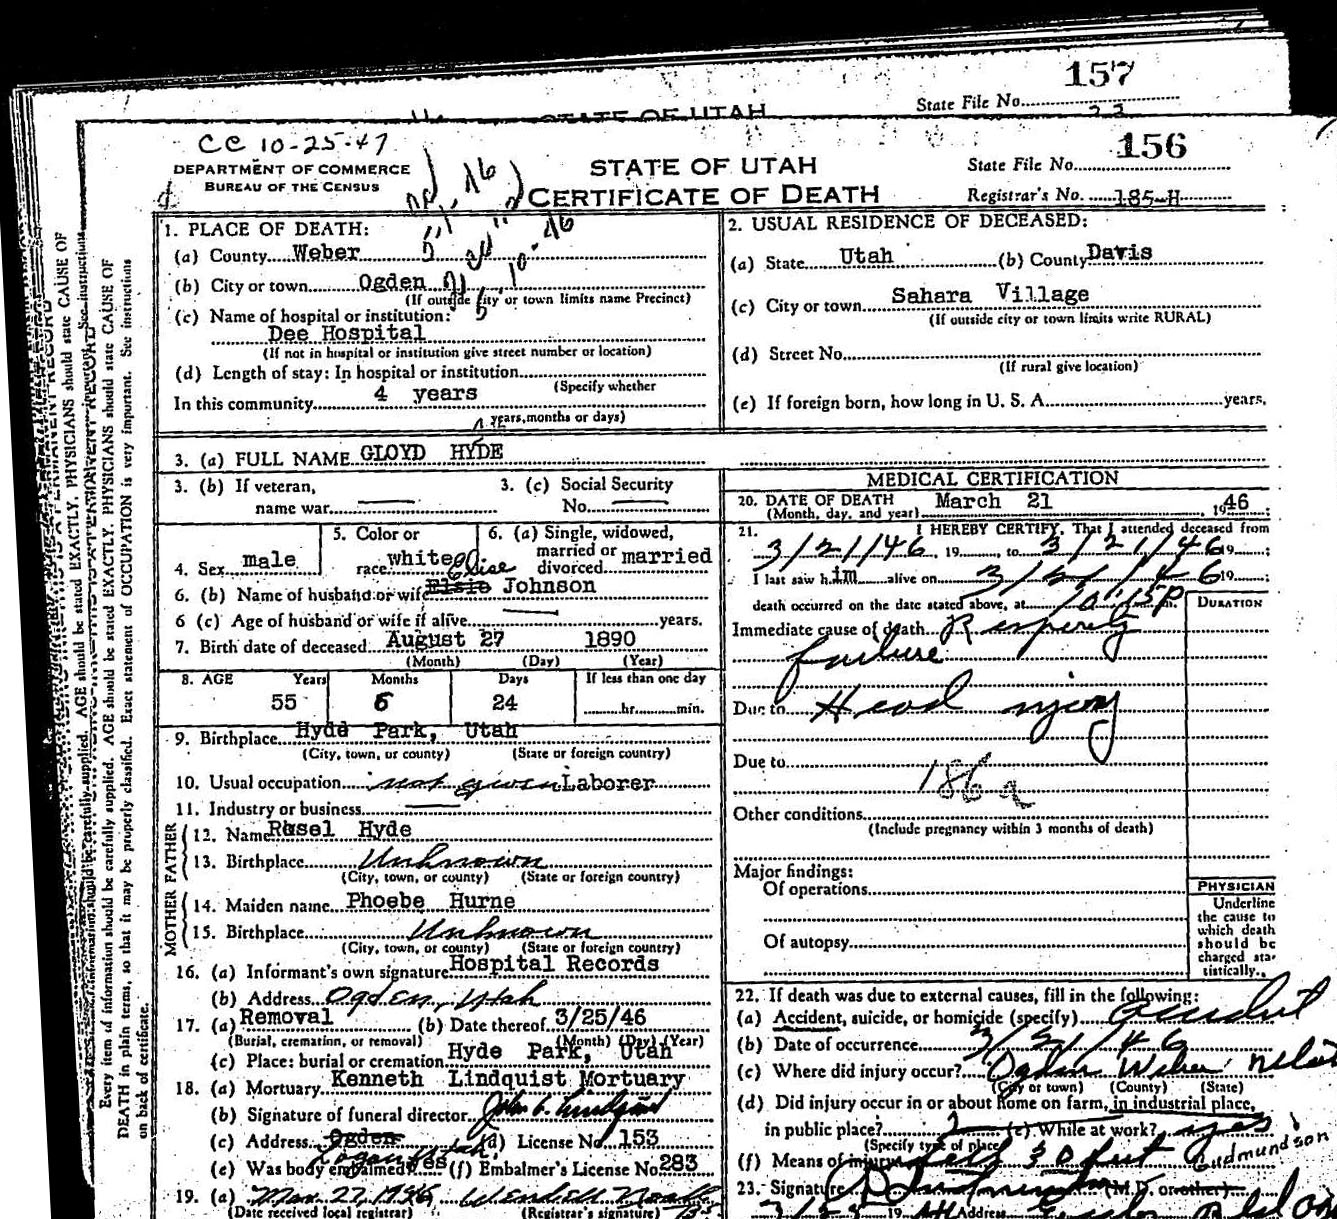 157
State File No.
STATE OF UTAH
CC 10-25-47
DEPARTMENT OF COMMERCE
BUREAU OF THE CENSUS
STATE OF UTAH
CERTIFICATE OF DEATH
State File No. 156
Registrar's No. 185-H
1. PLACE OF DEATH:
(a) County Weber
(b) City or town Ogden
(If outside city or town limits name Precinct)
(c) Name of hospital or institution:
Dee Hospital
(If not in hospital or institution give street number or location)
(d) Length of stay: In hospital or institution
(Specify whether
In this community 4 years
years, months or days)
2. USUAL RESIDENCE OF DECEASED:
(a) State Utah (b) County Davis
(c) City or town Sahara Village
(If outside city or town limits write RURAL)
(d) Street No.
(If rural give location)
(e) If foreign born, how long in U. S. A. years.
3. (a) FULL NAME GLOYD HYDE
3. (b) If veteran,
name war
3. (c) Social Security
No.
4. Sex male
5. Color or
race white
6. (a) Single, widowed,
married or
divorced married
6. (b) Name of husband or wife Elsie Johnson
6 (c) Age of husband or wife if alive years.
7. Birth date of deceased August 27 1890
(Month) (Day) (Year)
8. AGE Years Months Days If less than one day
55 6 24 hr. min.
9. Birthplace Hyde Park, Utah
(City, town, or county) (State or foreign country)
10. Usual occupation not given Laborer
11. Industry or business
FATHER
12. Name Rosel Hyde
13. Birthplace Unknown
(City, town, or county) (State or foreign country)
MOTHER
14. Maiden name Phoebe Hurne
15. Birthplace Unknown
(City, town, or county) (State or foreign country)
16. (a) Informant's own signature Hospital Records
(b) Address Ogden, Utah
17. (a) Removal (b) Date thereof 3/25/46
(Burial, cremation, or removal) (Month) (Day) (Year)
(c) Place: burial or cremation Hyde Park, Utah
18. (a) Mortuary Kenneth Lindquist Mortuary
(b) Signature of funeral director John E. Lindquist
(c) Address Ogden Logan, Utah (d) License No. 153
(e) Was body embalmed? yes (f) Embalmer's License No. 283
19. (a) Mar 27 1946 Wendell
(Date received local registrar) (Registrar's signature)
MEDICAL CERTIFICATION
20. DATE OF DEATH March 21 1946
(Month, day, and year)
21. I HEREBY CERTIFY, That I attended deceased from
3/21/46, 19, to 3/21/46 19;
I last saw him alive on 3/21/46 19;
death occurred on the date stated above, at 10:15P m.
DURATION
Immediate cause of death
failure
Due to Head injury
Due to
186a
Other conditions
(Include pregnancy within 3 months of death)
Major findings:
Of operations
Of autopsy
PHYSICIAN
Underline
the cause to
which death
should be
charged sta-
tistically.
22. If death was due to external causes, fill in the following:
(a) Accident, suicide, or homicide (specify) accident
(b) Date of occurrence 3/21/46
(c) Where did injury occur? Ogden Weber Utah
(City or town) (County) (State)
(d) Did injury occur in or about home on farm, in industrial place,
in public place? (e) While at work? yes
(Specify type of place)
(f) Means of injury fell 30 feet
Gudmundson
23. Signature (M.D. or other)
Address
Every item of information should be carefully supplied. AGE should be stated EXACTLY. PHYSICIANS should state CAUSE OF
DEATH in plain terms, so that it may be properly classified. Exact statement of OCCUPATION is very important. See instructions
on back of certificate.